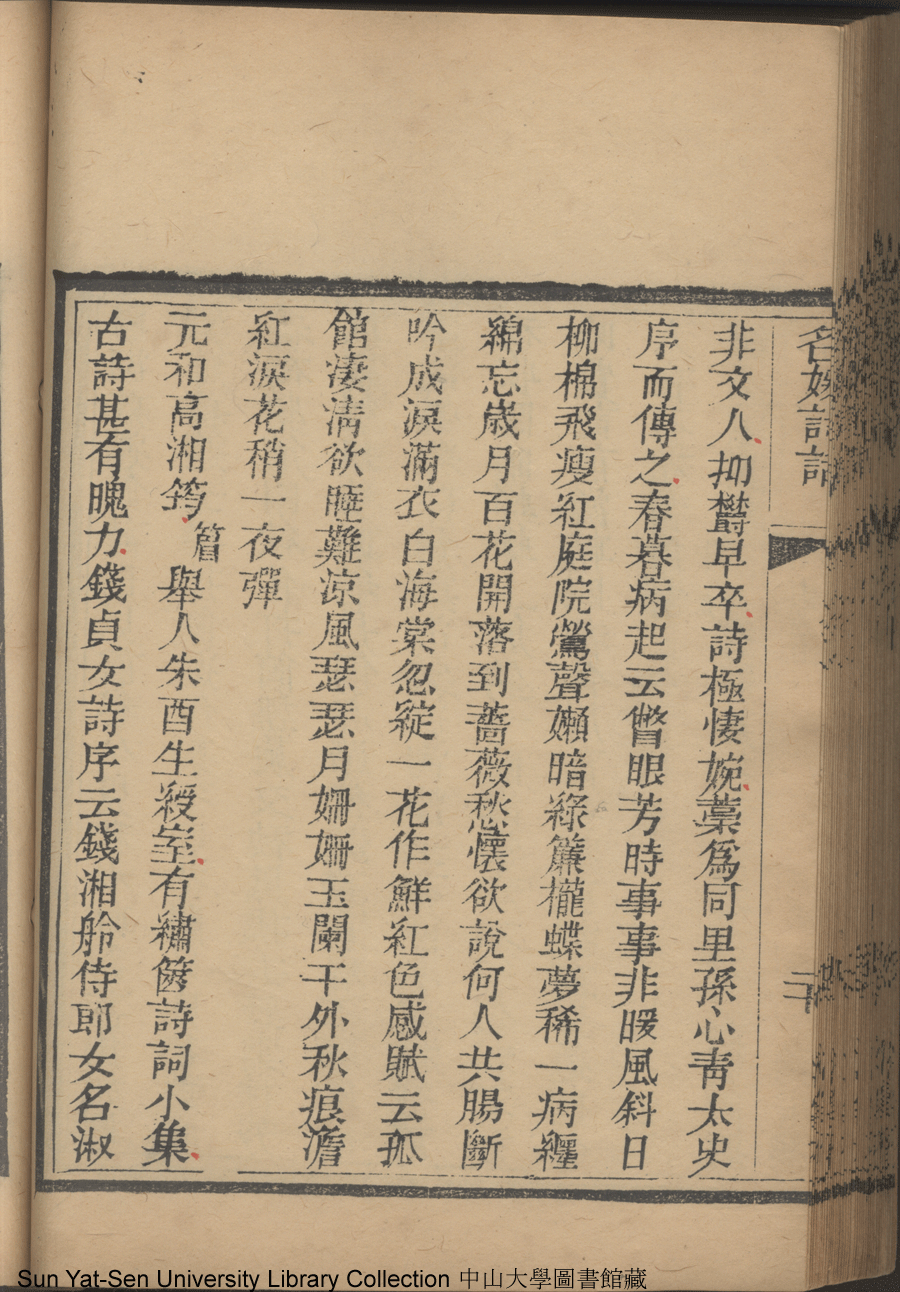 名媛詩話
二十
非文人抑鬱早卒詩極悽婉藁爲同里孫心青太史
序而傳之春暮病起云瞥眼芳時事事非暖風斜日
柳棉飛瘦紅庭院鶯聲嬾暗綠簾櫳蝶夢稀一病纏
綿忘歲月百花開落到薔薇愁懷欲說何人共腸斷
吟成淚滿衣白海棠忽綻一花作鮮紅色感賦云孤
館淒淸欲睡難涼風瑟瑟月姍姍玉闌干外秋痕澹
紅淚花稍一夜彈
元和高湘筠
篃
舉人朱酉生綬室有繡篋詩詞小集
古詩甚有魄力錢貞女詩序云錢湘舲侍郎女名淑
Sun Yat-Sen University Library Collection 中山大學圖書館藏